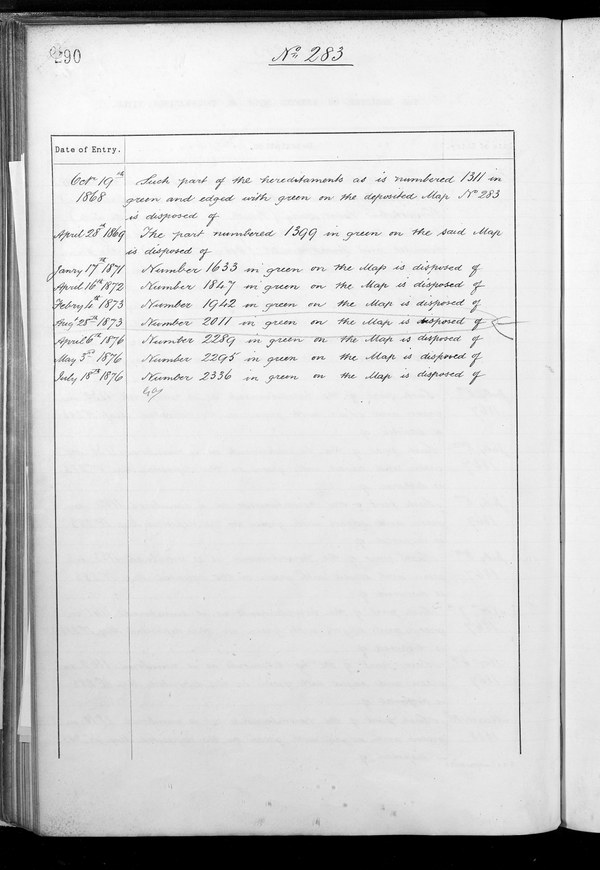 290
No. 283
Date of Entry.
Octr 19th 1868 Such part of the hereditaments as is numbered 1311 in
green and edged with green on the deposited Map No 283
is disposed of
April 28th 1869 The part numbered 1399 in green on the said Map
is disposed of
Janry 17th 1871 Number 1633 in green on the Map is disposed of
April 16th 1872 Number 1847 in green on the Map is disposed of
Febry 4th 1873 Number 1942 in green on the Map is disposed of
Augt 28th 1873 Number 2011 in green on the Map is disposed of
April 6th 1876 Number 2289 in green on the Map is disposed of
May 3rd 1876 Number 2295 in green on the Map is disposed of
July 18th 1876 Number 2336 in green on the Map is disposed of